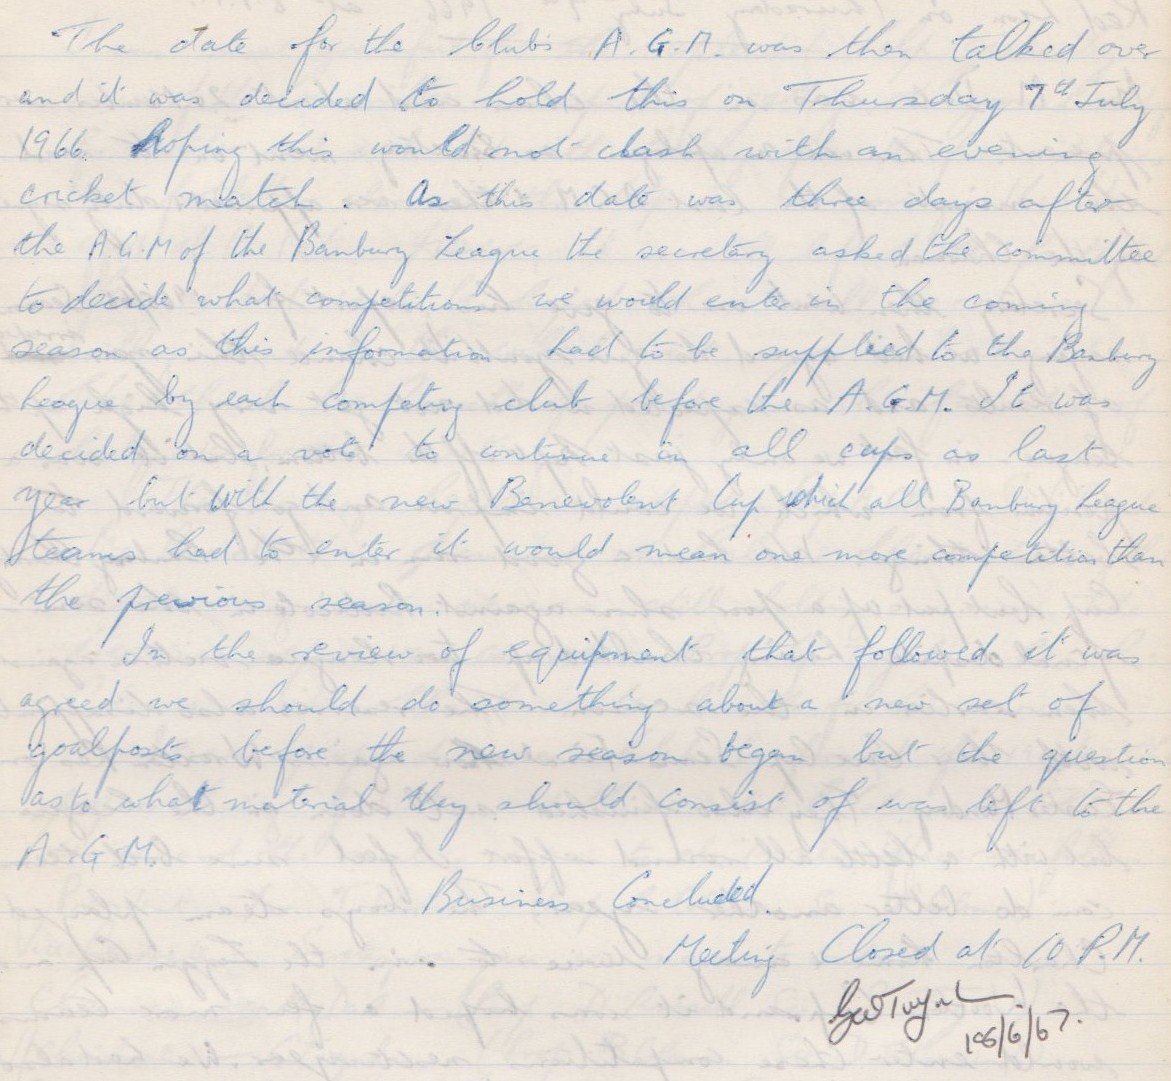 The date for the Club's A.G.M. was then talked over
and it was decided to hold this on Thursday 7th July
1966. hoping this would not clash with an evening
cricket match. As this date was three days after
the A.G.M of the Banbury League the secretary asked the committee
to decide what competitions we would enter in the coming
season as this information had to be supplied to the Banbury
League by each competing club before the A.G.M. It was
decided on a vote to continue in all cups as last
year but with the new Benevolent Cup which all Banbury League
teams had to enter it would mean one more competition than
the previous season.
In the review of equipment that followed it was
agreed we should do something about a new set of
goalposts before the new season began but the question
as to what material they should consist of was left to the
A.G.M.
Business Concluded.
Meeting Closed at 10 P.M.
/6/67.